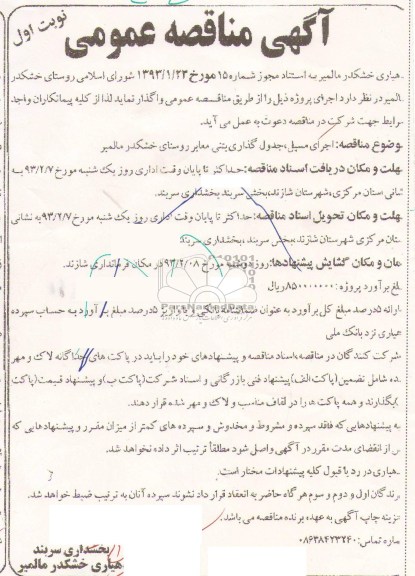 نوبت اول
آگهی مناقصه عمومی
هیاری خشکدر مالمیر به استناد مجوز شماره ۱۵ مورخ ۱۳۹۳/۱/۲۳ شورای اسلامی روستای خشکدر
المیر در نظر دارد اجرای پروژه ذیل را از طریق مناقصه عمومی واگذار نماید لذا از کلیه پیمانکاران واجد
رایط جهت شرکت در مناقصه دعوت به عمل می آید.
وضوع مناقصه: اجرای مسیل،جدول گذاری بتنی معابر روستای خشکدر مالمیر
هلت و مکان دریافت اسناد مناقصه: حداکثر تا پایان وقت اداری روز یک شنبه مورخ ۹۳/۲/۷ به
شانی استان مرکزی،شهرستان شازند،بخش سربند بخشداری سربند.
هلت و مکان تحویل اسناد مناقصه: حداکثر تا پایان وقت اداری روز یک شنبه مورخ ۹۳/۲/۷ به نشانی
ستان مرکزی شهرستان شازند،بخش سربند ،بخشداری سربند
مان و مکان گشایش پیشنهادها: روز دوشنبه مورخ ۹۳/۲/۰۸ در مکان فرمانداری شازند.
بلغ برآورد پروژه: ۸۵۰۰۰۰۰۰۰ ریال
ارائه ۵درصد مبلغ کل برآورد به عنوان ضمانتنامه بانکی و یا واریز ۵درصد مبلغ برآورد به حساب سپرده
هیاری نزد بانک ملی
شرکت کنندگان در مناقصه،اسناد مناقصه و پیشنهادهای خود را باید در پاکت های جداگانه لاک و مهر
ده شامل تضمین(پاکت الف)پیشنهاد فنی بازرگانی و اسناد شرکت(پاکت ب)و پیشنهاد قیمت(پاکت
)بگذارند و همه پاکت ها را در لفاف مناسب و لاک و مهر شده قرار دهند.
به پیشنهادهایی که فاقد سپرده و مشروط و مخدوش و سپرده های کمتر از میزان مقرر و پیشنهادهایی که
س از انقضای مدت مقرر در آگهی واصل شود مطلقاً ترتیب اثر داده نخواهد شد.
هیاری در رد یا قبول کلیه پیشنهادات مختار است.
رندگان اول و دوم و سوم هر گاه حاضر به انعقاد قرار داد نشوند سپرده آنان به ترتیب ضبط خواهد شد.
هزینه چاپ آگهی به عهده برنده مناقصه می باشد.
ماره تماس: ۰۸۶۳۸۴۲۳۲۴۰
بخشداری سربند
هیاری خشکدر مالمیر